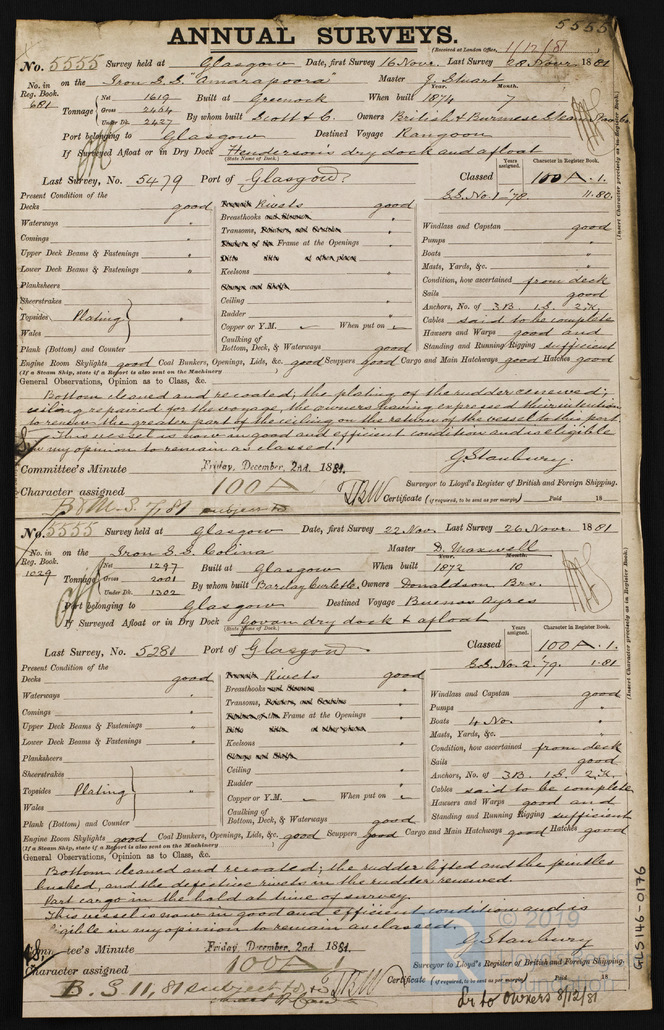 5555
ANNUAL SURVEYS.
(Received at London Office, 1/12/81
No. 5555 Survey held at Glasgow Date, first Survey 16 Novr. Last Survey 28 Novr. 1881
No. in Reg. Book. 681 on the Iron S.S. "Amarapoora" Master J. Stuart
Tonnage Net 1619 Gross 2464 Under Dk. 2427 Built at Greenock When built Year. 1874 Month. 7
By whom built Scott & C. Owners British & Burmese Steam
Port belonging to Glasgow Destined Voyage Rangoon
If Surveyed Afloat or in Dry Dock Henderson's dry dock and afloat
(State Name of Dock.)
Last Survey, No. 5479 Port of Glasgow.
Years assigned. Character in Register Book.
Classed 100 A.1.
S.S. No. 1 - 78 11.80.
(Insert Character precisely as in Register Book.)
Present Condition of the
Decks good
Waterways "
Comings "
Upper Deck Beams & Fastenings "
Lower Deck Beams & Fastenings "
Planksheers
Sheerstrakes
Topsides Plating "
Wales
Plank (Bottom) and Counter
Rivets good
Breasthooks "
Transoms, "
Frame at the Openings "
Keelsons "
Ceiling "
Rudder "
Copper or Y.M. When put on
Caulking of Bottom, Deck, & Waterways good
Windlass and Capstan good
Pumps "
Boats "
Masts, Yards, &c. "
Condition, how ascertained from deck
Sails good
Anchors, No. of 3 B. 1 S. 2 K.
Cables said to be complete
Hawsers and Warps good and
Standing and Running Rigging sufficient
Engine Room Skylights good Coal Bunkers, Openings, Lids, &c. good Scuppers good Cargo and Main Hatchways good Hatches good
(If a Steam Ship, state if a Report is also sent on the Machinery
General Observations, Opinion as to Class, &c.
Bottom cleaned and recoated, the plating of the rudder renewed;
ceiling repaired for the voyage, the owners having expressed their intention
to renew the greater part of the ceiling on the return of the vessel to this port.
This vessel is now in good and efficient condition and is eligible
in my opinion to remain as classed.
G. Stanbury.
Committee's Minute Friday, December, 2nd. 1881.
Surveyor to Lloyd's Register of British and Foreign Shipping.
Character assigned 100 A
Certificate (if required, to be sent as per margin) Paid 18
B & M.S. 7/81 subject to
No. 5555 Survey held at Glasgow Date, first Survey 22 Nov. Last Survey 26 Novr. 1881
No. in Reg. Book. 1029 on the Iron S.S. Colina Master D. Maxwell
Tonnage Net 1297 Gross 2001 Under Dk. 1302 Built at Glasgow When built Year. 1872 Month. 10
By whom built Barclay Curle & Co. Owners Donaldson Brs.
Port belonging to Glasgow Destined Voyage Buenos Ayres
If Surveyed Afloat or in Dry Dock Govan dry dock & afloat
(State Name of Dock.)
Last Survey, No. 5281 Port of Glasgow.
Years assigned. Character in Register Book.
Classed 100 A.1.
S.S. No. 2. 79. 1.81
(Insert Character precisely as in Register Book.)
Present Condition of the
Decks good
Waterways "
Comings "
Upper Deck Beams & Fastenings "
Lower Deck Beams & Fastenings "
Planksheers
Sheerstrakes
Topsides Plating "
Wales
Plank (Bottom) and Counter
Rivets good
Breasthooks "
Transoms, "
Frame at the Openings "
Keelsons "
Ceiling "
Rudder "
Copper or Y.M. When put on
Caulking of Bottom, Deck, & Waterways good
Windlass and Capstan good
Pumps "
Boats 4 No. "
Masts, Yards, &c. "
Condition, how ascertained from deck
Sails good
Anchors, No. of 3 B. 1 S. 2 K.
Cables said to be complete
Hawsers and Warps good and
Standing and Running Rigging sufficient
Engine Room Skylights good Coal Bunkers, Openings, Lids, &c. good Scuppers good Cargo and Main Hatchways good Hatches good
(If a Steam Ship, state if a Report is also sent on the Machinery
General Observations, Opinion as to Class, &c.
Bottom cleaned and recoated; the rudder lifted and the pintles
bushed, and the defective rivets in the rudder renewed.
Part cargo in the hold at time of survey.
This vessel is now in good and efficient condition and is
eligible in my opinion to remain as classed.
G. Stanbury
© 2019
Committee's Minute Friday, December, 2nd. 1881.
Surveyor to Lloyd's Register of British and Foreign Shipping.
Character assigned 100 A 1
Certificate (if required, to be sent as per margin) Paid 18
B.S 11, 81 subject to
Lr to owners 8/12/81
GLS146-0176